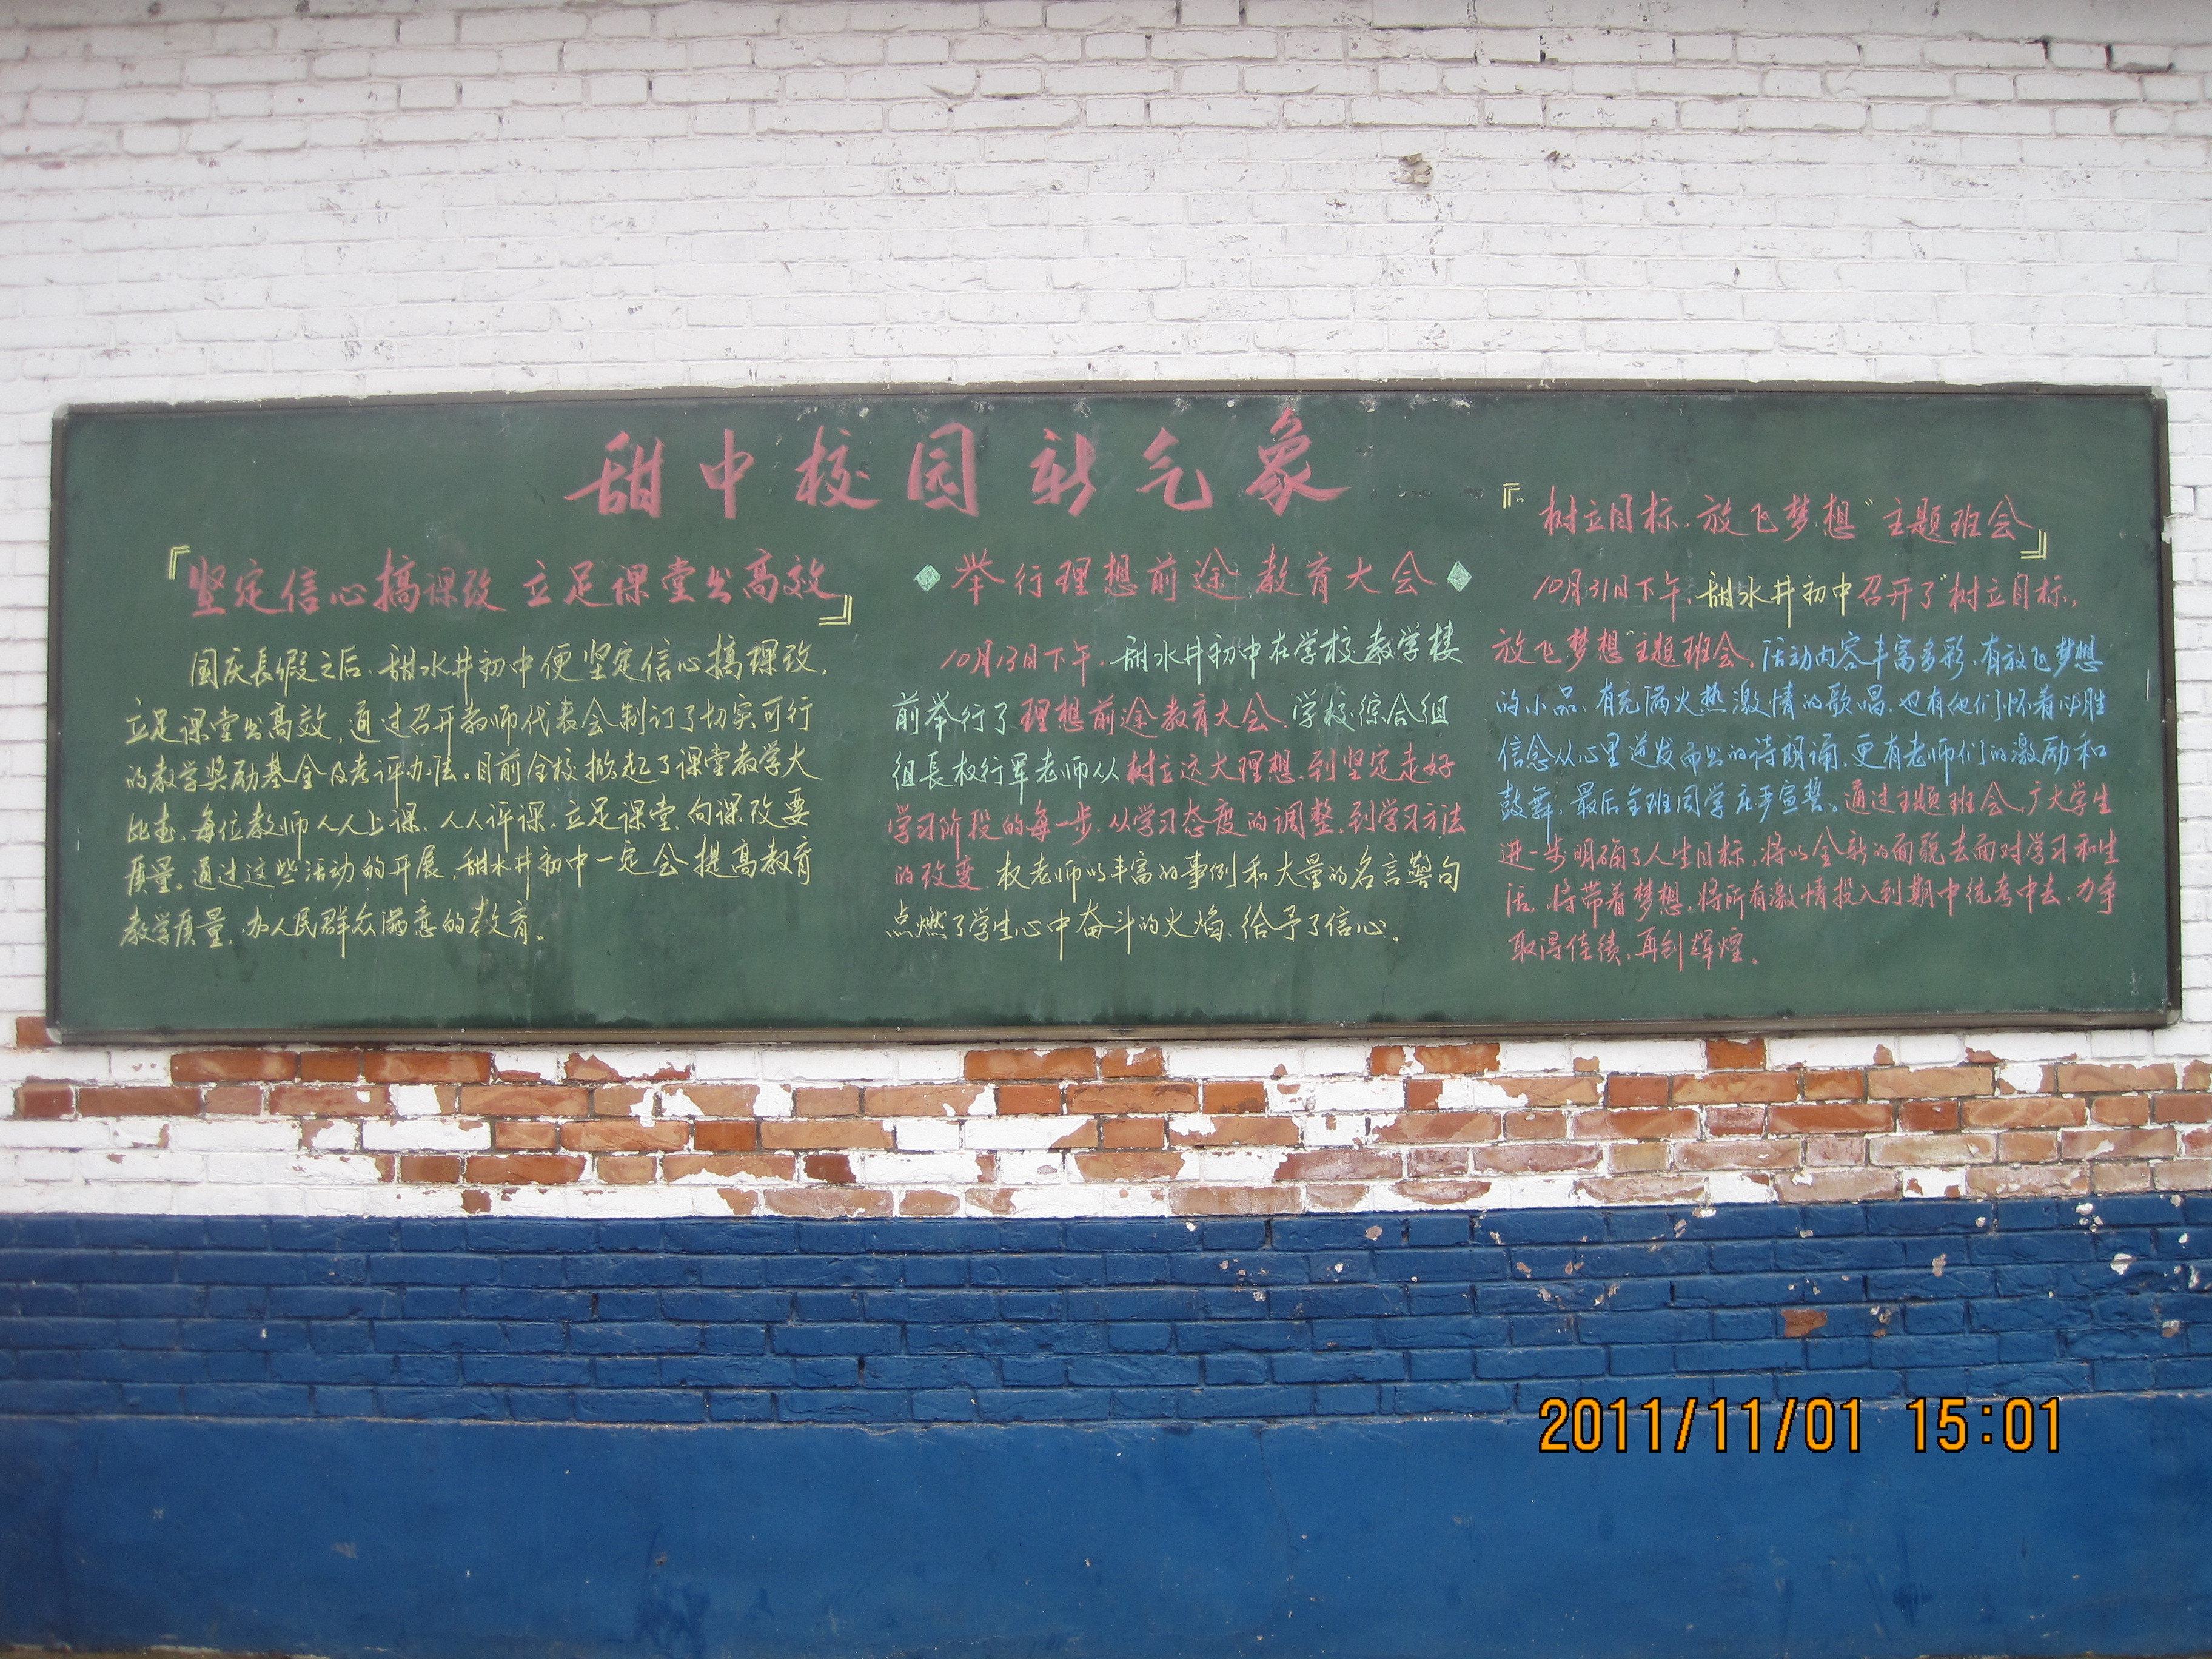 甜中校园新气象
『坚定信心搞课改 立足课堂出高效』
国庆长假之后,甜水井初中便坚定信心搞课改,
立足课堂出高效,通过召开教师代表会制订了切实可行
的教学奖励基金及考评办法。目前全校掀起了课堂教学大
比武,每位教师人人上课,人人评课,立足课堂,向课改要
质量。通过这些活动的开展,甜水井初中一定会提高教育
教学质量,办人民群众满意的教育。
举行理想前途教育大会
10月13日下午,甜水井初中在学校教学楼
前举行了理想前途教育大会,学校综合组
组长权行军老师从树立远大理想,到坚定走好
学习阶段的每一步,从学习态度的调整,到学习方法
的改变 权老师以丰富的事例和大量的名言警句
点燃了学生心中奋斗的火焰,给予了信心。
『树立目标,放飞梦想”主题班会』
10月31日下午,甜水井初中召开了“树立目标,
放飞梦想”主题班会,活动内容丰富多彩,有放飞梦想
的小品,有充满火热激情的歌唱,也有他们怀着必胜
信念从心里迸发而出的诗朗诵,更有老师们的激励和
鼓舞,最后全班同学庄严宣誓。通过主题班会,广大学生
进一步明确了人生目标,将以全新的面貌去面对学习和生
活,将带着梦想,将所有激情投入到期中统考中去,力争
取得佳绩,再创辉煌。
2011/11/01 15:01